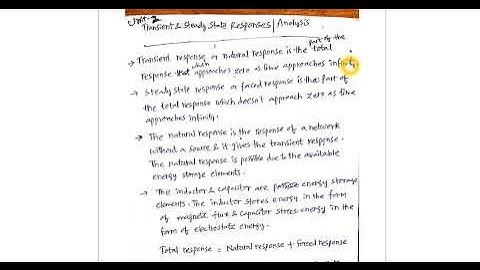 Unit-2
Transient & Steady State Responses / Analysis
→ Transient response or natural response is the part of the total
response that which approaches zero as time approaches infinity.
→ Steady state response or forced response is the part of
the total response which doesn't approach zero as time
approaches infinity.
→ The natural response is the response of a network
without a source & it gives the transient response.
The natural response is possible due to the available
energy storage elements.
→ The inductor & capacitor are passive energy storage
elements. The inductor stores energy in the form
of magnetic flux & capacitor stores energy in the
form of electrostatic energy.
Total response = Natural response + Forced response